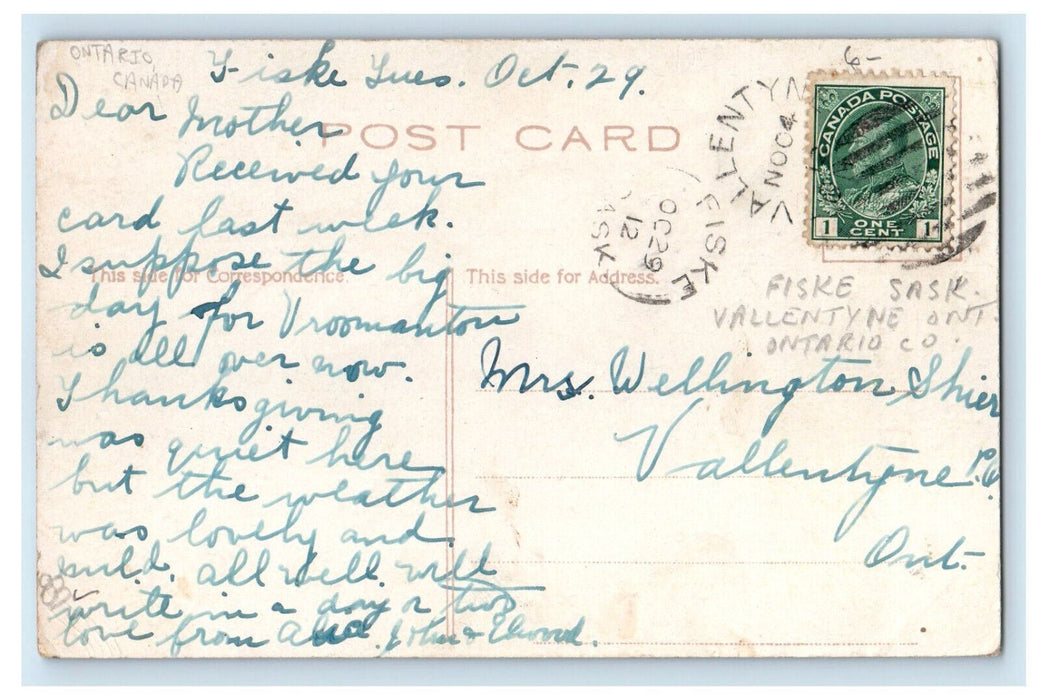 ONTARIO,
CANADA
Fiske Tues. Oct. 29.
Dear Mother
Received your
card last week.
I suppose the big
day for Vroomanton
is all over now.
Thanksgiving
was quiet here
but the weather
was lovely and
mild. all well will
write in a day or two
love from John & Elwood.
POST CARD
This side for Correspondence.
This side for Address.
VALLENTYN
NO 4
FISKE
OC 29
12
SASK
6-
CANADA POSTAGE
1 ONE CENT 1
FISKE SASK.
VALLENTYNE ONT.
ONTARIO CO.
Mrs. Wellington Shier
Vallentyne P.O.
Ont.